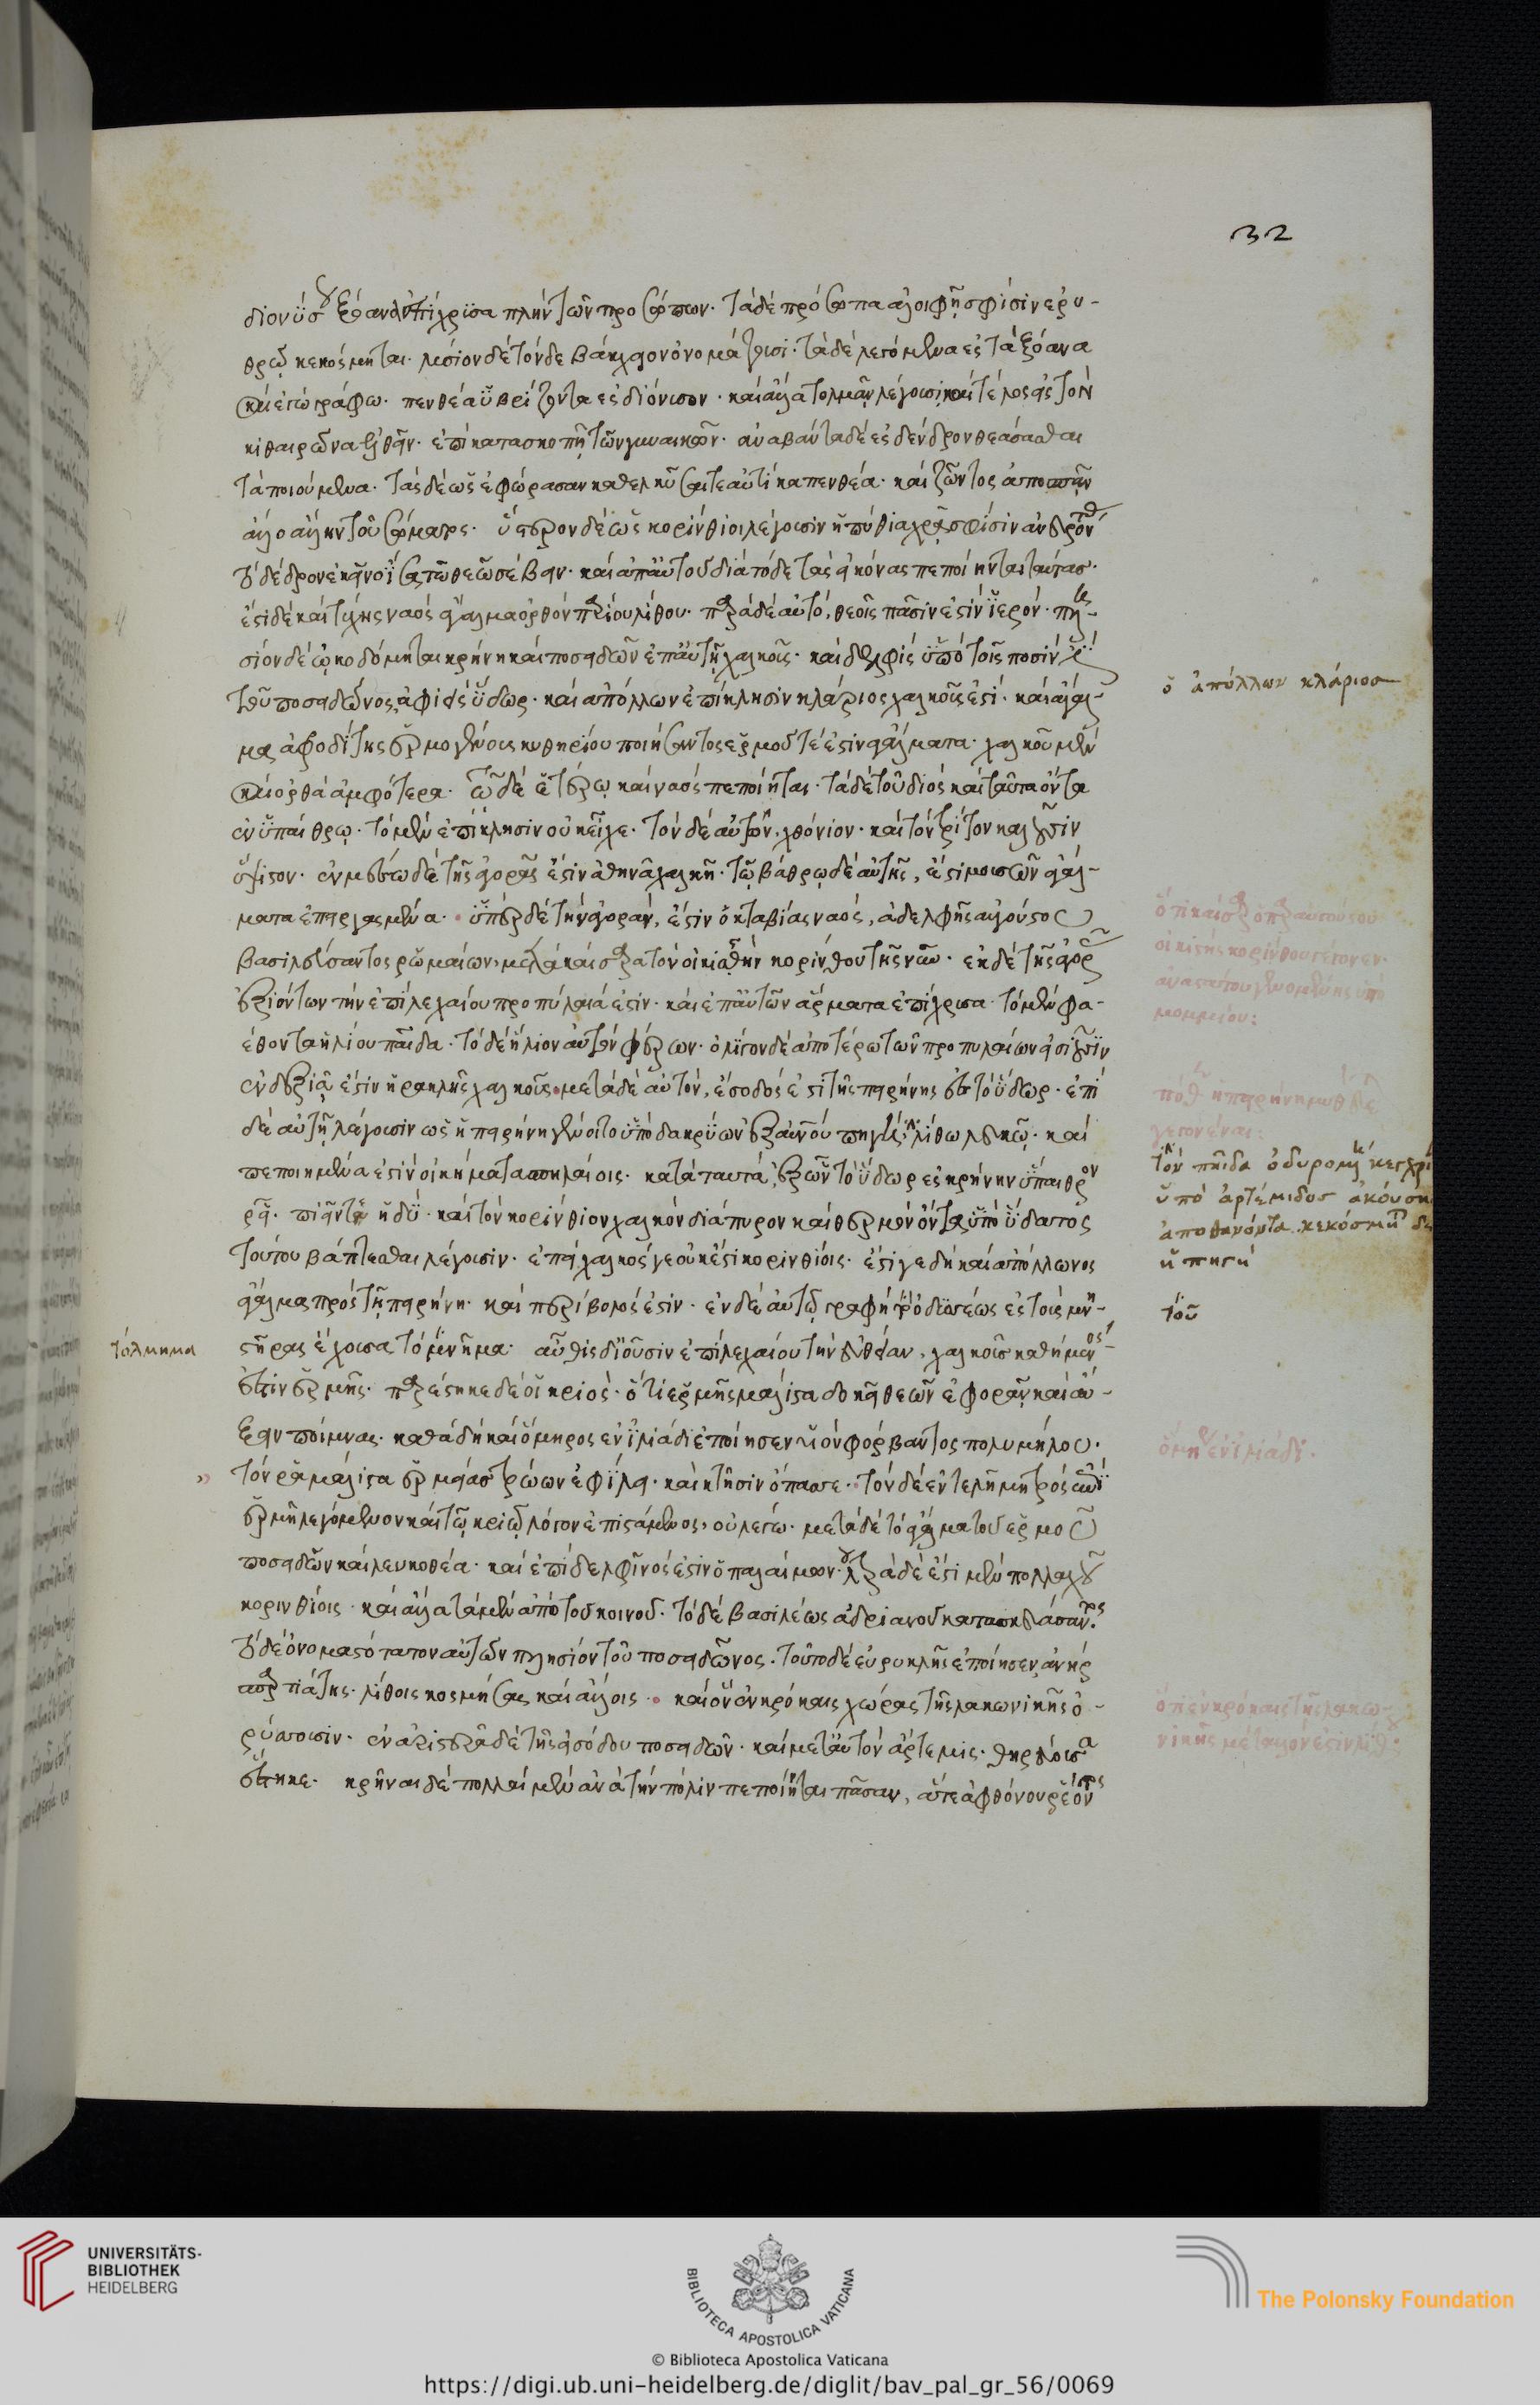 32
διονύσου ξόανα ἐπίχρυσα πλὴν τῶν προσώπων· τὰ δὲ πρόσωπα ἀλοιφῇ σφίσιν ἐρυ-
θρῷ κεκόσμηται· λύσιον δὲ τόνδε βάκχιον ὀνομάζουσι· τὰ δὲ λεγόμενα ἐς τὰ ξόανα
καὶ ἐγὼ γράφω· πενθέα ὑβρίζοντα ἐς διόνυσον· καὶ ἄλλα τολμᾶν λέγουσι καὶ τέλος ἐς τὸν
κιθαιρῶνα ἐλθεῖν· ἐπὶ κατασκοπῇ τῶν γυναικῶν· ἀναβάντα δὲ ἐς δένδρον θεάσασθαι
τὰ ποιούμενα· τὰς δὲ ὡς ἐφώρασαν καθελκῦσαί τε αὐτίκα πενθέα· καὶ ζῶντος ἀποσπᾶν
ἄλλο ἄλλην τοῦ σώματος· ὕστερον δὲ ὡς κορίνθιοι λέγουσιν ἡ πυθία χρᾷ σφίσιν ἀνευρόντας
τὸ δένδρον ἐκεῖνο ἴσα τῷ θεῷ σέβειν· καὶ ἀπ' αὐτοῦ διὰ τόδε τὰς εἰκόνας πεποίηνται ταύτας·
ἔστι δὲ καὶ τύχης ναὸς ἄγαλμα ὀρθὸν παρίου λίθου· παρὰ δὲ αὐτὸ, θεοῖς πᾶσίν ἐστιν ἱερόν· πλη-
σίον δὲ ᾠκοδόμηται κρήνη καὶ ποσειδῶν ἐπ' αὐτῇ χαλκοῦς· καὶ δελφὶς ὑπὸ τοῖς ποσίν ἐστι
τοῦ ποσειδῶνος, ἀφιεὶς ὕδωρ· καὶ ἀπόλλων ἐπίκλησιν κλάριος χαλκοῦς ἐστι· καὶ ἄγαλ-
μα ἀφροδίτης ἑρμογένους κυθηρίου ποιήσαντος ἑρμοῦ τέ ἐστιν ἀγάλματα· χαλκοῦ μὲν
καὶ ὀρθὰ ἀμφότερα· τῷ δὲ ἑτέρῳ καὶ ναὸς πεποίηται· τὰ δὲ τοῦ διὸς καὶ ταῦτα ὄντα
ἐν ὑπαίθρῳ· τὸ μὲν ἐπίκλησιν οὐκ εἶχε· τὸν δὲ αὐτῶν, χθόνιον· καὶ τὸν τρίτον καλοῦσιν
ὕψιστον· ἐν μέσῳ δὲ τῆς ἀγορᾶς ἐστιν ἀθηνᾶ χαλκῆ· τῷ βάθρῳ δὲ αὐτῆς, ἐστὶ μουσῶν ἀγάλ-
ματα ἐπειργασμένα· ὑπὲρ δὲ τὴν ἀγοράν, ἐστιν ὀκταβίας ναός, ἀδελφῆς αὐγούστου
βασιλεύσαντος ῥωμαίων, μετὰ καίσαρα τὸν οἰκιστὴν κορίνθου τῆς νῦν· ἐκ δὲ τῆς ἀγορᾶς
ἐξιόντων τὴν ἐπὶ λεχαίου προπύλαιά ἐστιν· καὶ ἐπ' αὐτῶν ἅρματα ἐπίχρυσα· τὸ μὲν φα-
έθοντα ἡλίου παῖδα· τὸ δὲ ἥλιον αὐτὸν φέρων· ὀλίγον δὲ ἀπωτέρω τῶν προπυλαίων ἐσιοῦσιν
ἐν δεξιᾷ ἐστιν ἡρακλῆς χαλκοῦς· μετὰ δὲ αὐτόν, ἔσοδός ἐστι τῆς πειρήνης ἐς τὸ ὕδωρ· ἐπὶ
δὲ αὐτῇ λέγουσιν ὡς ἡ πειρήνη γένοιτο ὑπὸ δακρύων ἐξ ἀνθρώπου πηγή· λίθῳ λευκῷ· καὶ
πεποιημένα ἐστὶν οἰκήματα σπηλαίοις· κατὰ ταυτὰ, ἐξ ὧν τὸ ὕδωρ ἐς κρήνην ὕπαιθρον
ῥεῖ· πιεῖν τε ἡδύ· καὶ τὸν κορίνθιον χαλκὸν διάπυρον καὶ θερμὸν ὄντα ὑπὸ ὕδατος
τούτου βάπτεσθαι λέγουσιν· ἐπεὶ χαλκός γε οὐκ ἔστι κορινθίοις· ἔστι γε δὴ καὶ ἀπόλλωνος
ἄγαλμα πρὸς τῇ πειρήνῃ· καὶ περίβολός ἐστιν· ἐν δὲ αὐτῷ γραφὴ τὸ ὀδυσσέως ἐς τοὺς μνη-
στῆρας ἔχουσα τὸ μνῆμα· αὖθις δ' ἰοῦσιν ἐπὶ λεχαίου τὴν εὐθεῖαν, χαλκοῦς καθήμενός
ἐστιν ἑρμῆς· παρέστηκε δέ οἱ κριός· ὅτι ἑρμῆς μάλιστα δοκεῖ θεῶν ἐφορᾶν καὶ αὔ-
ξειν ποίμνας· καθὰ δὴ καὶ ὅμηρος ἐν ἰλιάδι ἐποίησεν υἱὸν φόρβαντος πολυμήλου·
τόν ῥα μάλιστα ἑρμείας τρώων ἐφίλει· καὶ κτῆσιν ὄπασσε· τὸν δὲ ἐν τελετῇ μητρὸς ἐπὶ
ἑρμῇ λεγόμενον καὶ τῷ κριῷ λόγον ἐπιστάμενος, οὐ λέγω· μετὰ δὲ τὸ ἄγαλμα τοῦ ἑρμοῦ
ποσειδῶν καὶ λευκοθέα· καὶ ἐπὶ δελφῖνός ἐστιν ὁ παλαίμων· λουτρὰ δὲ ἔστι μὲν πολλαχοῦ
κορινθίοις· καὶ ἄλλα τὰ μὲν ἀπὸ τοῦ κοινοῦ· τὸ δὲ βασιλέως ἀδριανοῦ κατασκευάσαντος·
τὸ δὲ ὀνομαστότατον αὐτῶν πλησίον τοῦ ποσειδῶνος· τοῦτο δὲ εὐρυκλῆς ἐποίησεν ἀνὴρ
σπαρτιάτης· λίθοις κοσμήσας καὶ ἄλλοις· καὶ ὃν ἐν κρόκαις χώρας τῆς λακωνικῆς ὀ-
ρύσσουσιν· ἐν ἀριστερᾷ δὲ τῆς ἐσόδου ποσειδῶν· καὶ μετ' αὐτὸν ἄρτεμις· θηρεύουσα
ἕστηκε· κρῆναι δὲ πολλαὶ μὲν ἀνὰ τὴν πόλιν πεποίηνται πᾶσαν, ἅτε ἀφθόνου ῥέοντος
ὁ ἀπόλλων κλάριος
τὸν παῖδα ὀδυρομένη κεγχρί
ὑπὸ ἀρτέμιδος ἀκούση
ἀποθανόντα κεκόσμηται δὲ
ἡ πηγὴ
τοῦ
τόλμημα
ὅμηρος ἐν ἰλιάδι·
ὅτι ἐν κρόκαις τῆς λακω-
νικῆς
UNIVERSITÄTS-
BIBLIOTHEK
HEIDELBERG
BIBLIOTECA APOSTOLICA VATICANA
The Polonsky Foundation
© Biblioteca Apostolica Vaticana
https://digi.ub.uni-heidelberg.de/diglit/bav_pal_gr_56/0069